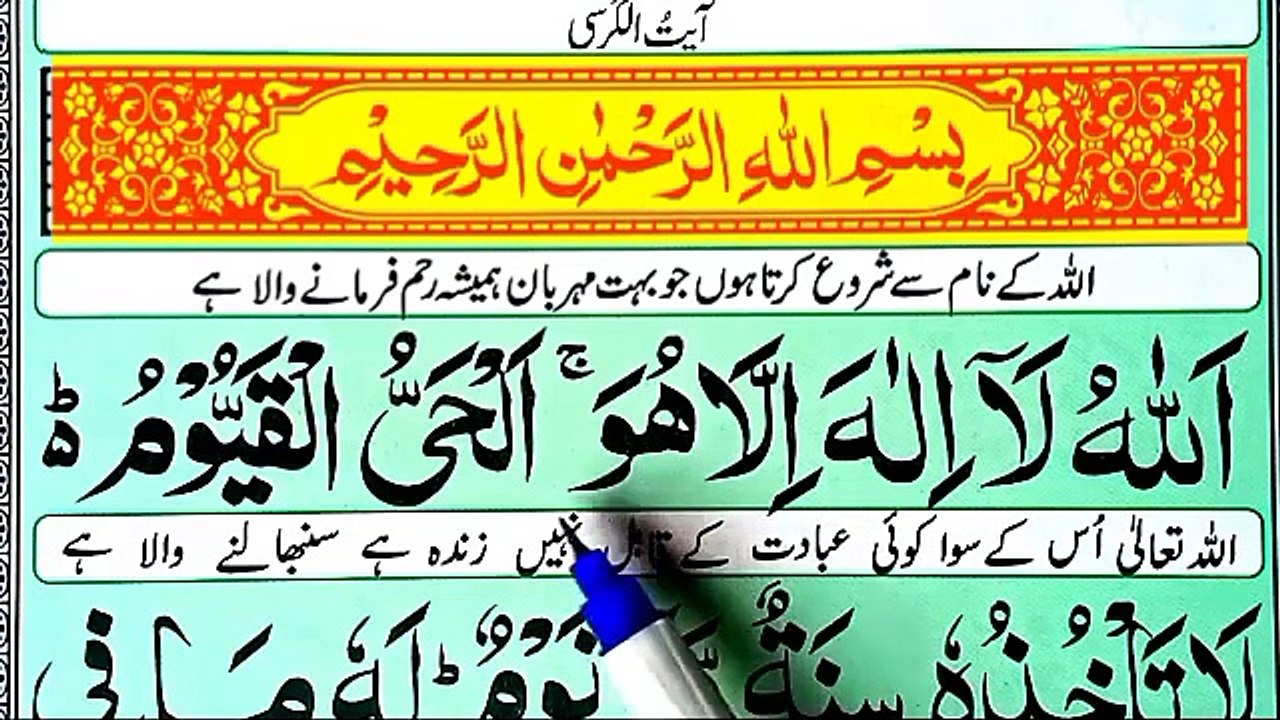 آیتُ الکُرسی
بِسْمِ اللّٰهِ الرَّحْمٰنِ الرَّحِيْمِ
اللہ کے نام سے شروع کرتا ہوں جو بہت مہربان ہمیشہ رحم فرمانے والا ہے
اَللّٰهُ لَاۤ اِلٰهَ اِلَّا هُوَ ۚ اَلْحَیُّ الْقَیُّوْمُ ۬ؕ
اللہ تعالیٰ اُس کے سوا کوئی عبادت کے قابل نہیں زندہ ہے سنبھالنے والا ہے
لَا تَاْخُذُهٗ سِنَةٌ نَوْمٌ ؕ لَهٗ مَا فِی